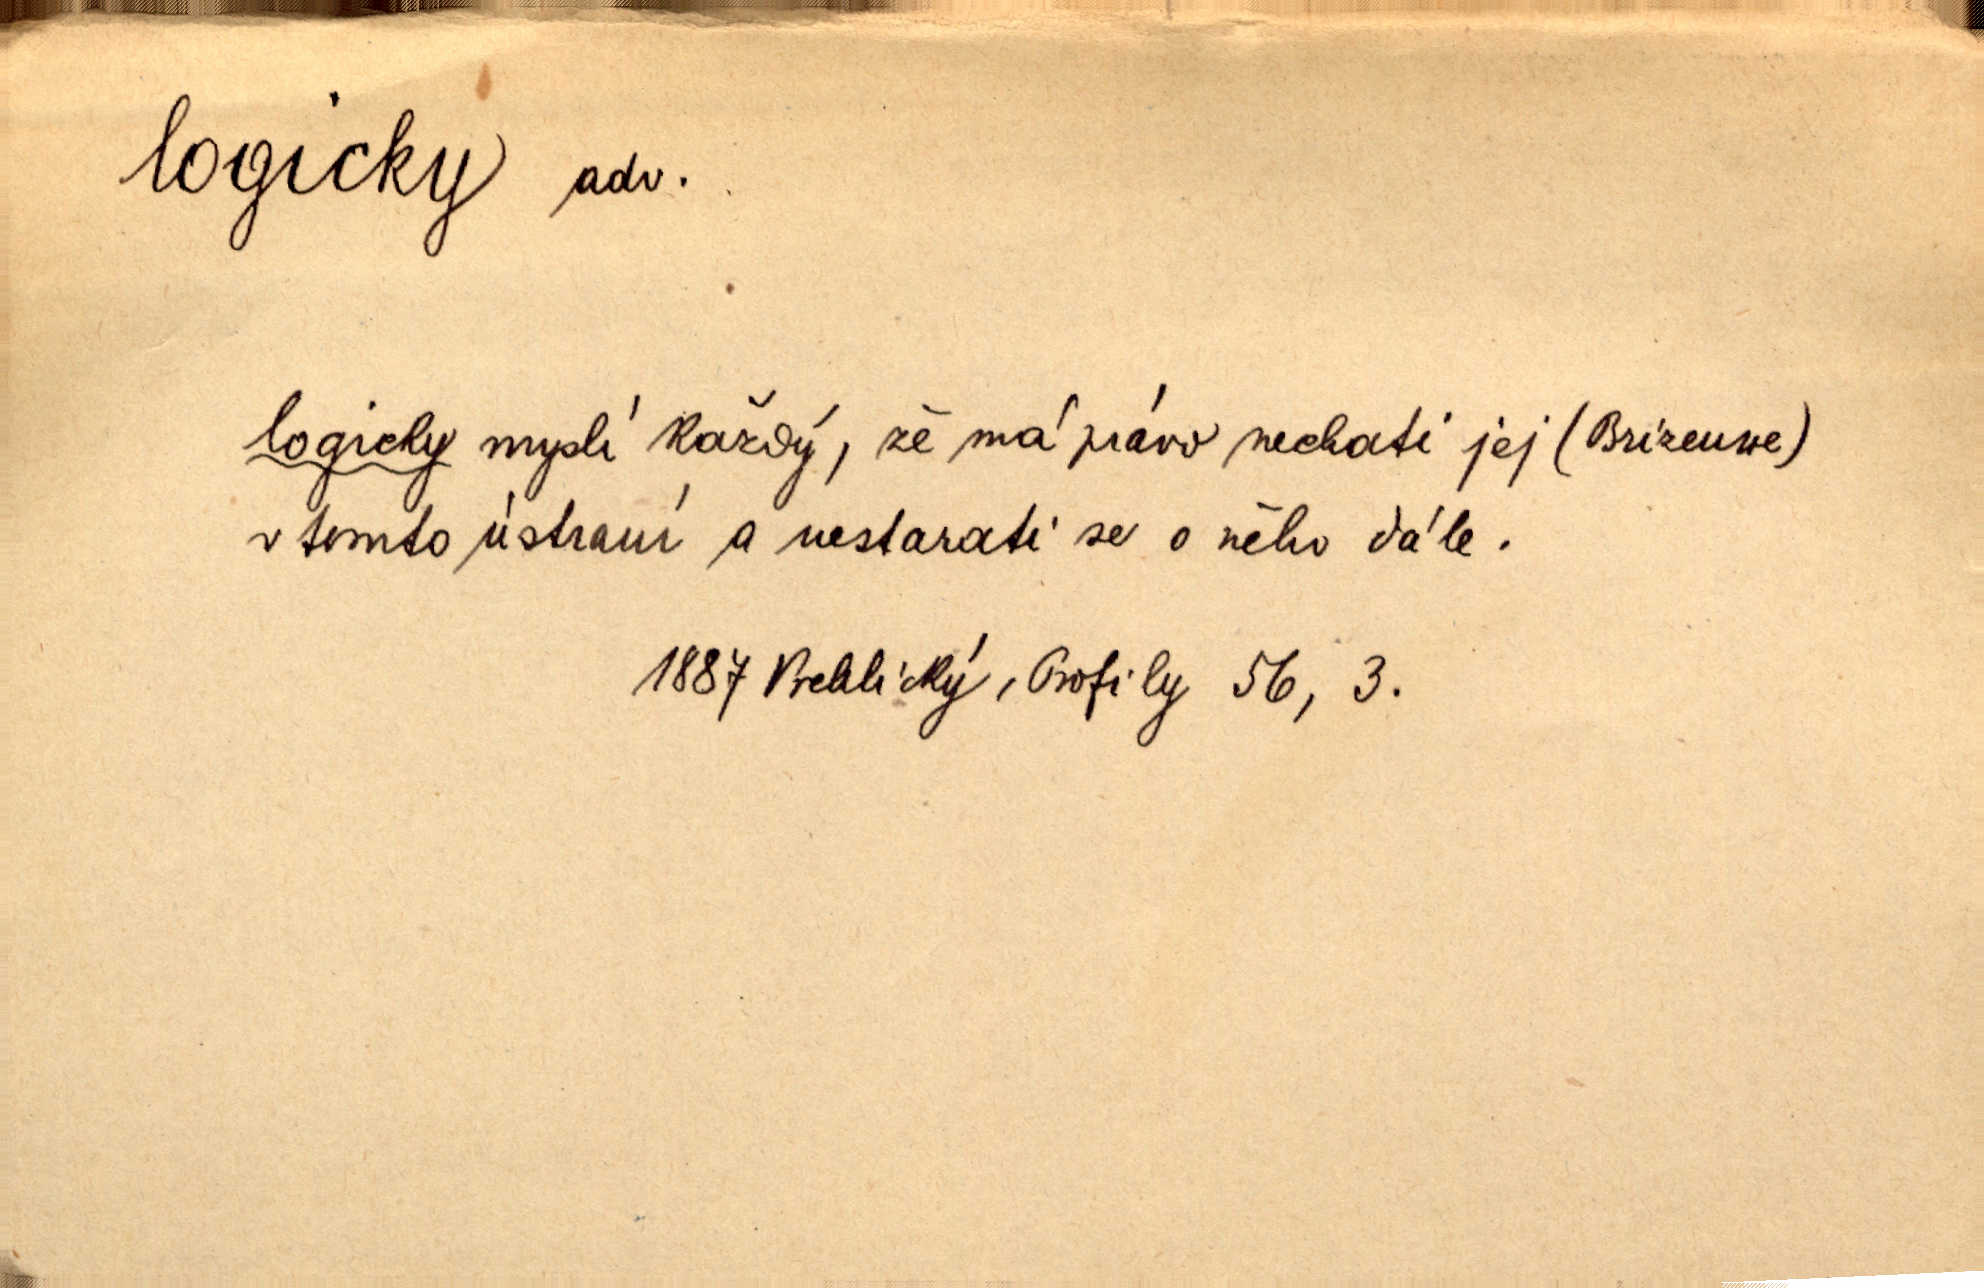 logicky adv.
logicky myslí každý, že má právo nechati jej (Brizeuxe)
v tomto ústraní a nestarati se o něho dále.
1887 Vrchlický, Profily 56, 3.